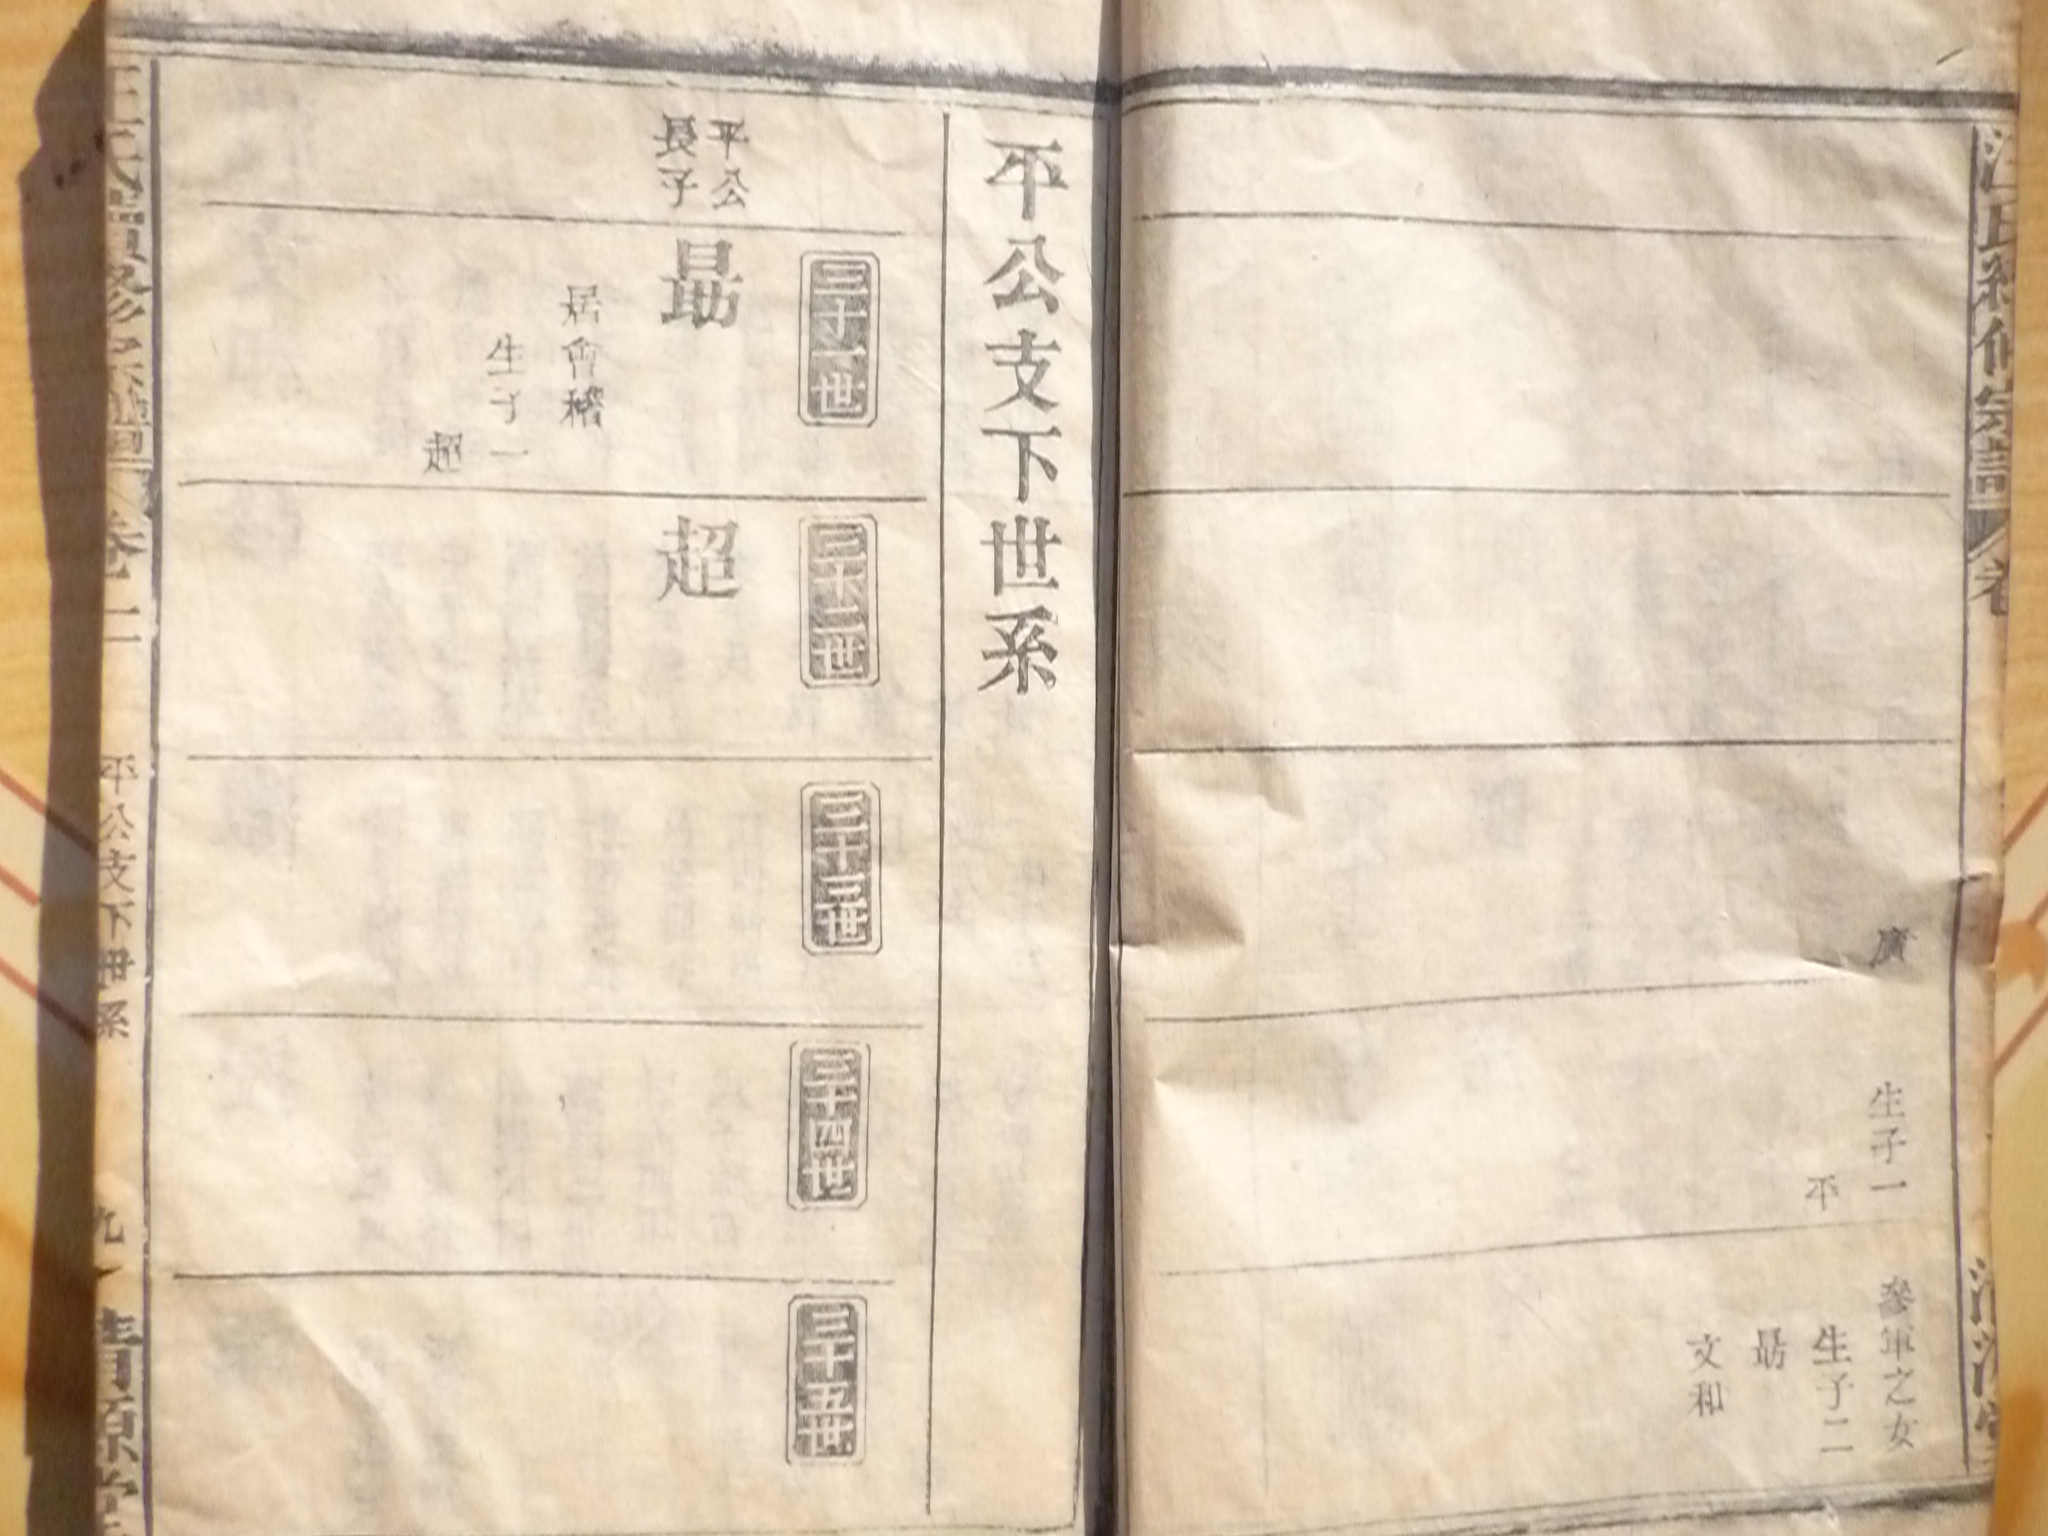 汪氏續修宗譜
卷
廣
生子一
平
參軍之女
生子二
勗
文和
平公支下世系
平公
長子
三十一世
勗
居會稽
生子一
超
三十二世
超
三十三世
三十四世
三十五世
汪氏續修宗譜
卷二
平公支下世系
九
清源堂